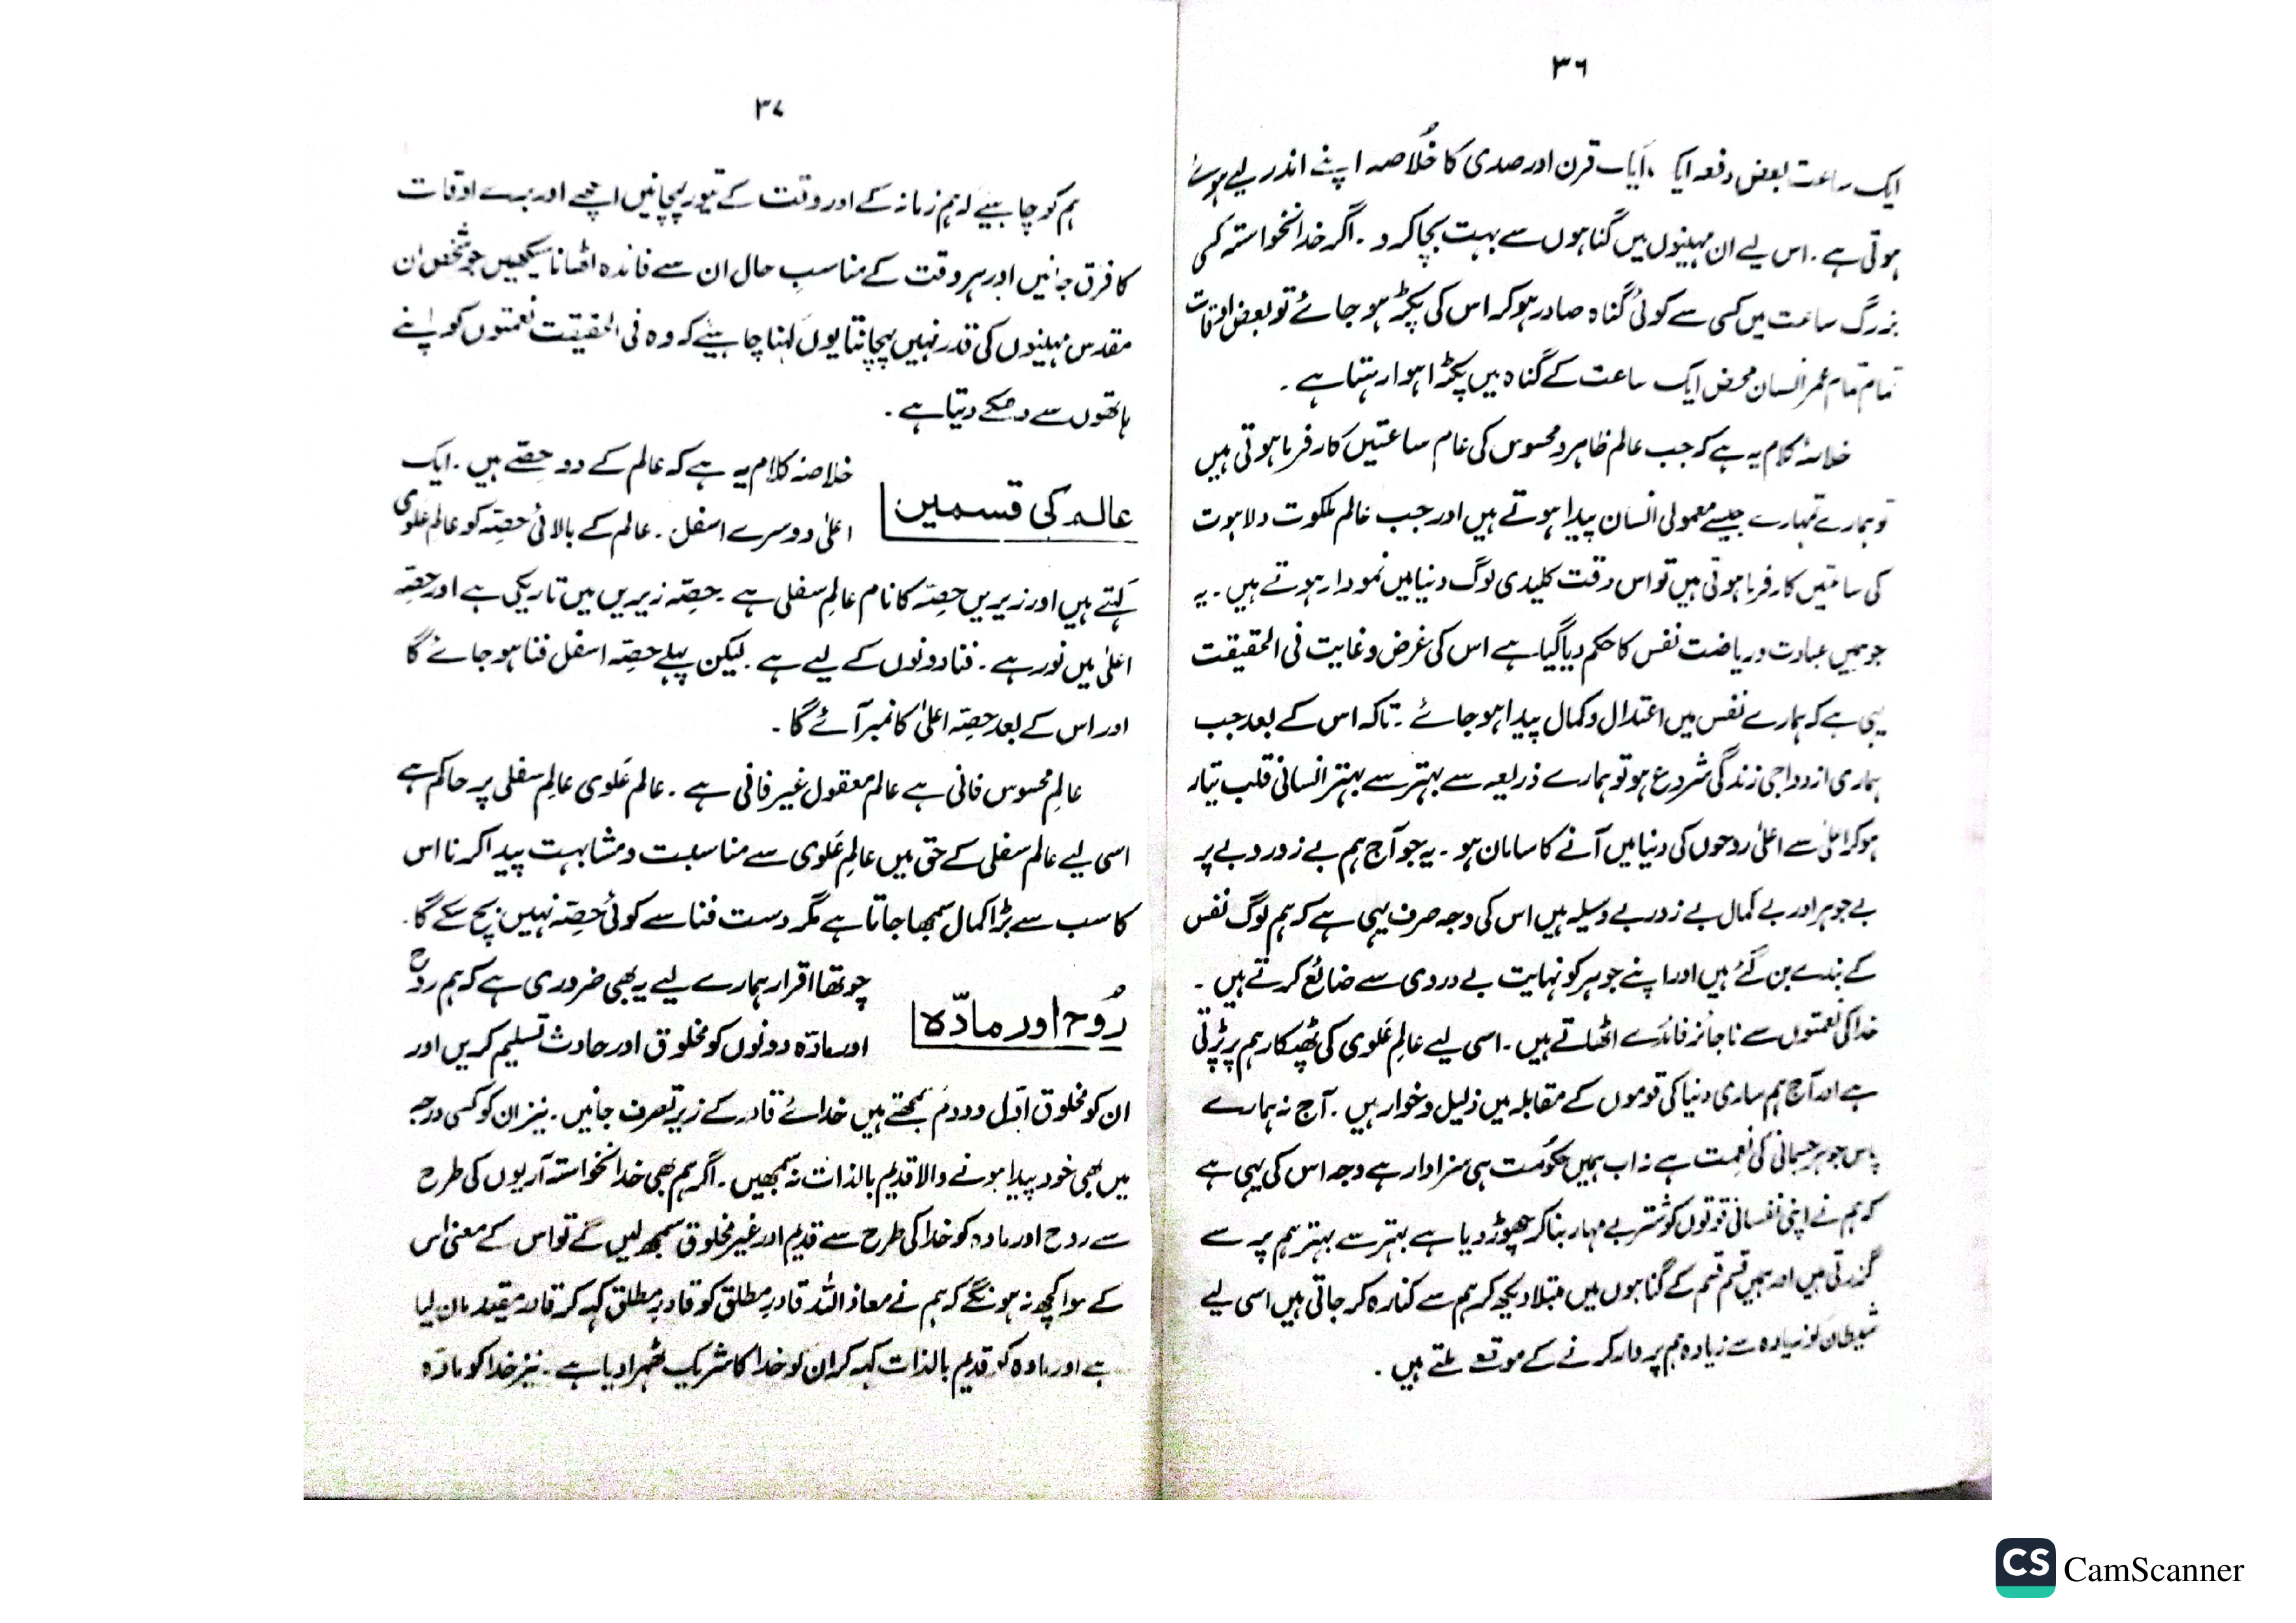 ۳۶
ایک ساعت بعض دفعہ ایک ایک قرن اور صدی کا خُلاصہ اپنے اندر لیے ہوئے
ہوتی ہے۔ اس لیے ان مہینوں میں گناہوں سے بہت بچا کرو۔ اگر خدانخواستہ کسی
بزرگ ساعت میں کسی سے کوئی گناہ صادر ہو کر اس کی پکڑ ہو جائے تو بعض اوقات
تمام تمام عمر انسان محض ایک ساعت کے گناہ میں پکڑا ہوا رہتا ہے۔
خلاصۂ کلام یہ ہے کہ جب عالم ظاہر و محسوس کی عام ساعتیں کارفرما ہوتی ہیں
تو ہمارے تمہارے جیسے معمولی انسان پیدا ہوتے ہیں اور جب عالم ملکوت و لاہوت
کی ساعتیں کارفرما ہوتی ہیں تو اس وقت کلیدی لوگ دنیا میں نمودار ہوتے ہیں۔ یہ
جو ہمیں عبادت و ریاضت نفس کا حکم دیا گیا ہے اس کی غرض و غایت فی الحقیقت
یہی ہے کہ ہمارے نفس میں اعتدال و کمال پیدا ہو جائے۔ تاکہ اس کے بعد جب
ہماری ازدواجی زندگی شروع ہو تو ہمارے ذریعہ سے بہتر سے بہتر انسانی قلب تیار
ہو کر اعلیٰ سے اعلیٰ روحوں کی دنیا میں آنے کا سامان ہو۔ یہ جو آج ہم بے زور و بے پر
بے جوہر اور بے کمال بے زور بے وسیلہ ہیں اس کی وجہ صرف یہی ہے کہ ہم لوگ نفس
کے بندے بن گئے ہیں اور اپنے جوہر کو نہایت بے دردی سے ضائع کرتے ہیں۔
خدا کی نعمتوں سے ناجائز فائدے اٹھاتے ہیں۔ اسی لیے عالمِ عَلوی کی پھٹکار ہم پر پڑتی
ہے اور آج ہم ساری دنیا کی قوموں کے مقابلہ میں ذلیل و خوار ہیں۔ آج نہ ہمارے
پاس جوہر جسمانی کی نعمت ہے نہ اب ہمیں حکومت ہی سزاوار ہے وجہ اس کی یہی ہے
کہ ہم نے اپنی نفسانی قوتوں کو شتر بے مہار بنا کر چھوڑ دیا ہے بہتر سے بہتر ہم پر سے
گزرتی ہیں اور ہمیں قسم قسم کے گناہوں میں مبتلا دیکھ کر ہم سے کنارہ کر جاتی ہیں اسی لیے
شیطان کو زیادہ سے زیادہ ہم پر وار کرنے کے موقعے ملتے ہیں۔
۳۷
ہم کو چاہیئے کہ ہم زمانہ کے اور وقت کے تیور پہچانیں اچھے اور برے اوقات
کا فرق جانیں اور ہر وقت کے مناسبِ حال ان سے فائدہ اٹھانا سیکھیں جو شخص ان
مقدس مہینوں کی قدر نہیں پہچانتا یوں کہنا چاہیئے کہ وہ فی الحقیقت نعمتوں کو اپنے
ہاتھوں سے دھکے دیتا ہے۔
عالم کی قسمیں
خلاصۂ کلام یہ ہے کہ عالم کے دو حِصّے ہیں۔ ایک
اعلیٰ دوسرے اسفل۔ عالم کے بالائی حصّہ کو عالمِ علوی
کہتے ہیں اور زیریں حصّہ کا نام عالمِ سفلی ہے۔ حصّہ زیریں میں تاریکی ہے اور حصّہ
اعلیٰ میں نور ہے۔ فنا دونوں کے لیے ہے۔ لیکن پہلے حصّہ اسفل فنا ہو جائے گا
اور اس کے بعد حصّہ اعلیٰ کا نمبر آئے گا۔
عالمِ محسوس فانی ہے عالم معقول غیر فانی ہے۔ عالم عَلوی عالمِ سفلی پر حاکم ہے
اسی لیے عالم سفلی کے حق میں عالمِ عَلوی سے مناسبت و مشابہت پیدا کرنا اس
کا سب سے بڑا کمال سمجھا جاتا ہے مگر دست فنا سے کوئی حصّہ نہیں بچ سکے گا۔
رُوح اور مادّہ
چوتھا اقرار ہمارے لیے یہ بھی ضروری ہے کہ ہم روح
اور مادّہ دونوں کو مخلوق اور حادث تسلیم کریں اور
ان کو مخلوق اوّل و دوم سمجھتے ہیں خدائے قادر کے زیر تصرف جانیں۔ نیز ان کو کسی درجہ
میں بھی خود پیدا ہونے والا قدیم بالذات نہ سمجھیں۔ اگر ہم بھی خدانخواستہ آریوں کی طرح
سے روح اور مادہ کو خدا کی طرح سے قدیم اور غیر مخلوق سمجھ لیں گے تو اس کے معنی اس
کے سوا کچھ نہ ہونگے کہ ہم نے معاذ اللہ قادرِ مطلق کو قادر مطلق کہہ کر قادر مقید مان لیا
ہے اور مادہ کو قدیم بالذات کہہ کر ان کو خدا کا شریک ٹھہرا دیا ہے۔ نیز خدا کو مادّہ
CS CamScanner